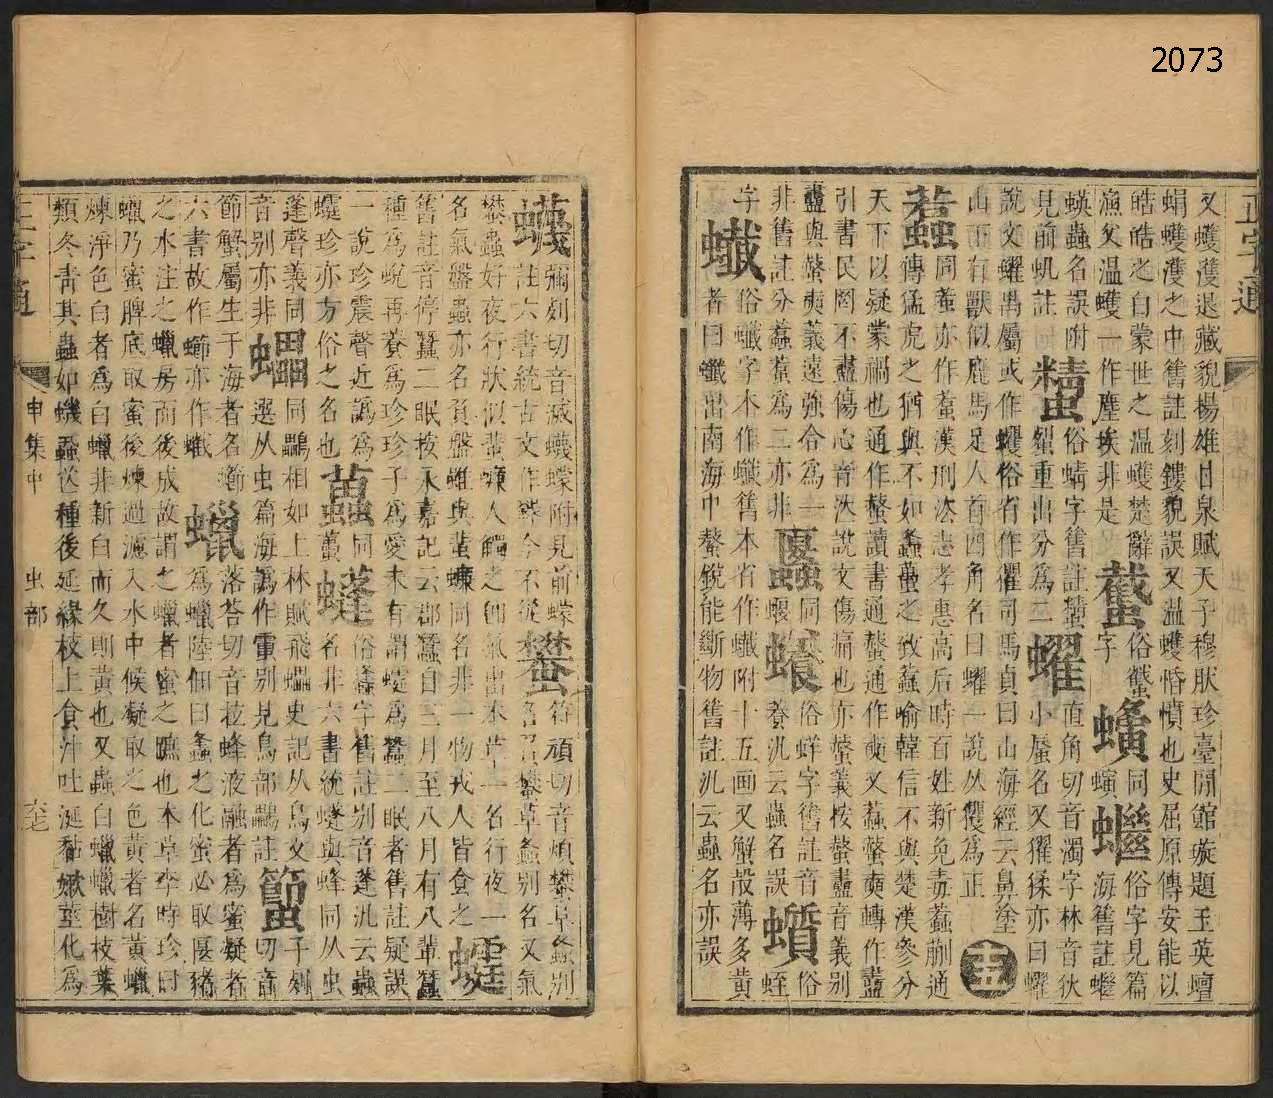 2073
正字通
又蠖濩退藏貌楊雄甘泉賦天子穆肰珍臺閒館璇題玉英壇
蜎蠖濩之中舊註刻鏤貌誤又温蠖惛憒也史屈原傳安能以
皓皓之白蒙世之温蠖楚辭
漁父温蠖一作塵埃非是 字 蠽 俗蠽
蟥 同 蟥 蠟 俗字見篇
蟥蟲名誤附
見前虮註 蜻 俗蜻字舊註
重出分為二 蠗 直角切音濁字林音狄
小蜃名又猚猱亦曰蠗
說文蠗禺屬或作蠼俗省作㺢司馬貞曰山海經云鼻塗
山下有獸似鹿馬足人首四角名曰蠗一說从玃為正
十五
蠚 同蓳亦作蓳漢刑法志孝惠高后時百姓新免毒蠚蒯通
傳猛虎之猶與不如蠭蠆之致蠚喻韓信不與楚漢參分
天下以疑蒙禍也通作螫讀書通螫通作奭又蠚螫奭轉作衋
引書民罔不衋傷心音汷說文傷痛也亦螫義桉螫衋音義别
衋與螫奭義遠強合為一
非舊註分蠚蓳為二亦非 蝘 同 俗蛘字舊註音
養汎云蟲名誤 俗
蛭
字 蠘 俗蠘字本作蠘舊本省作蠘附十五画又蟹殼薄多黄
者曰蠘出南海中螯銳能斷物舊註汎云蟲名亦誤
蠛 彌列切音滅蠛蠓附見前蠓
註六書統古文作 今不從 蠜 符頑切音煩蠜阜螽别
名 草螽别名又氣
蠜蟲好夜行狀似蜚蠊人觸之卽氣出本草一名行夜一
名氣盤蟲亦名負盤雖與蜚蠊同名非一物戎人皆食之 蝏
舊註音停蠶二眠桉永嘉記云郡蠶自三月至八月有八輩蠶
種為蚖再養為珍珍子為愛未有謂蝏為蠶二眠者舊註疑誤
一說珍震聲近譌為
珍亦方俗之名也 同
俗 字舊註别音蓬汎云蟲
名非六書統 與蜂同从虫
逢聲義同
音别亦非 同鸓相如上林賦飛蠝史記从鳥文
選从虫篇海譌作 别見鳥部鸓註 蠞 子列
切音
節蟹屬生于海者名
六書故作 亦作蠘 蠟 落荅切音拉蜂液融者為蜜凝者
為蠟陸佃曰螽之化蜜必取匽豬
之水注之蠟房而後成故謂之蠟者蜜之蹠也本草李時珍曰
蠟乃蜜脾底取蜜後煉過濾入水中候凝取之色黄者名黄蠟
煉淨色白者為白蠟非新白而久則黄也又蟲白蠟蠟樹枝葉
類冬靑其蟲如蟣蝨芒種後延緣枝上食汁吐涎黏嫰莖化為
正字通 申集中 虫部 六七